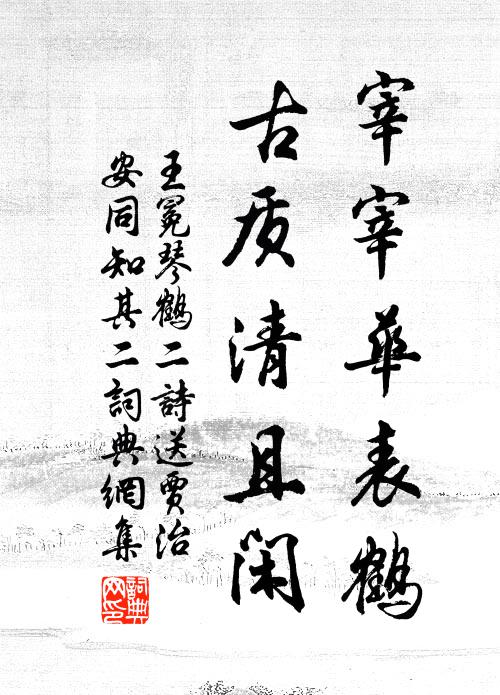 宰宰華表鶴
古质清且闲
王冕琴鶴二詩送賈治
安同知其二詞典網集